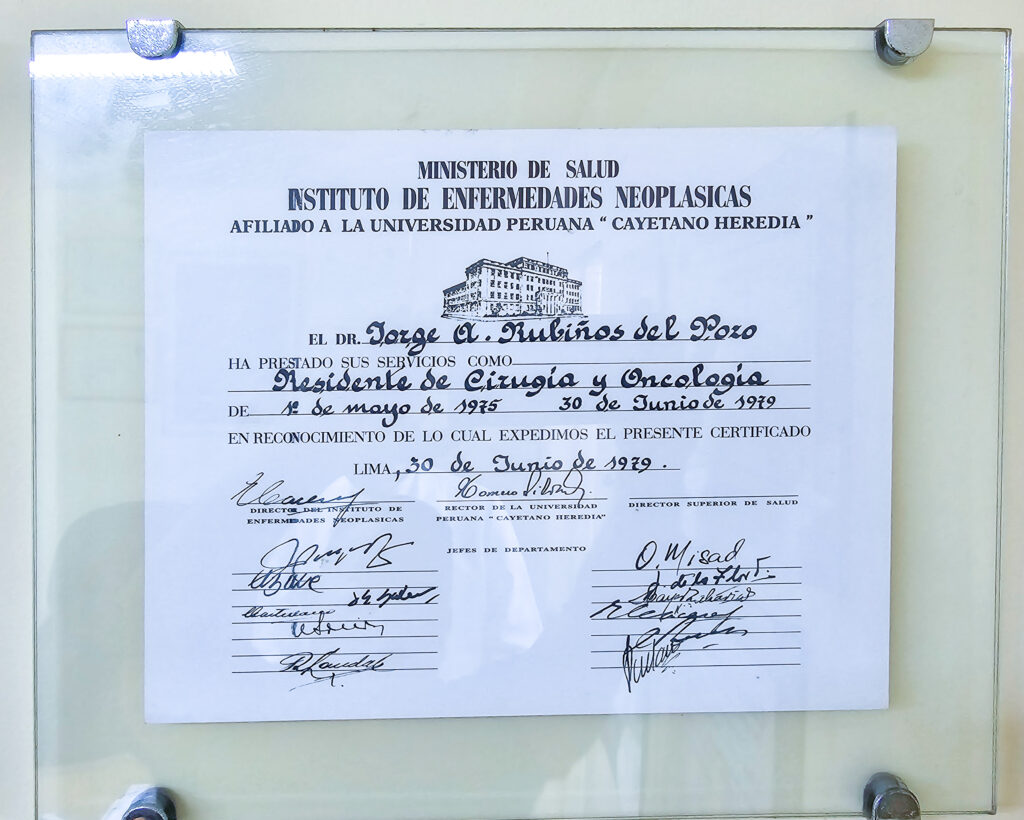 MINISTERIO DE SALUD
INSTITUTO DE ENFERMEDADES NEOPLASICAS
AFILIADO A LA UNIVERSIDAD PERUANA "CAYETANO HEREDIA"
EL DR. Jorge A. Rubiños del Pozo
HA PRESTADO SUS SERVICIOS COMO
Residente de Cirugía y Oncología
DE 1º de mayo de 1975 30 de Junio de 1979
EN RECONOCIMIENTO DE LO CUAL EXPEDIMOS EL PRESENTE CERTIFICADO
LIMA, 30 de Junio de 1979.
DIRECTOR DEL INSTITUTO DE
ENFERMEDADES NEOPLASICAS
RECTOR DE LA UNIVERSIDAD
PERUANA "CAYETANO HEREDIA"
DIRECTOR SUPERIOR DE SALUD
JEFES DE DEPARTAMENTO
O. Misad